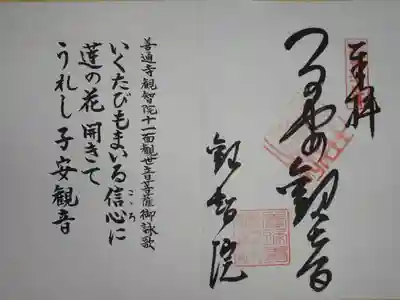 奉拝
観智院
善通寺観智院十一面観世音菩薩御詠歌
いくたびもまいる信心に
こゝろ
蓮の花 開きて
うれし子安観音